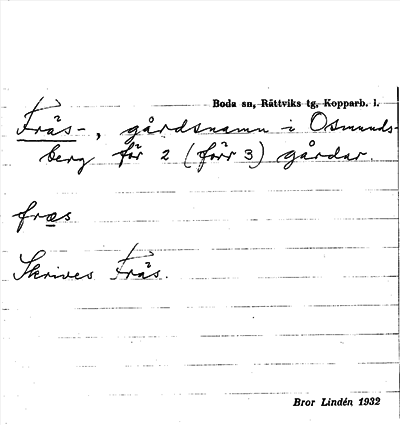 Boda sn, Rättviks tg, Kopparb. l.
Fräs-, gårdsnamn i Osmunds-
berg för 2 (förr 3) gårdar.
fræs
Skrives Fräs.
Bror Lindén 1932